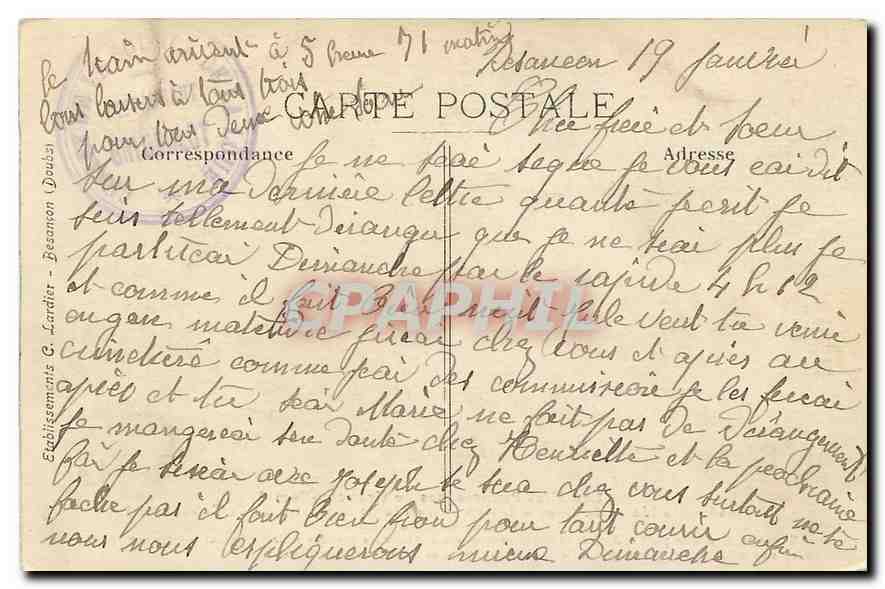 le train arrivent à 5 heure 71 matin
bons baisers à tous trois
pour tous deux votre soeur
Besancon 19 Janvier
CARTE POSTALE
Correspondance
Adresse
Cher frère et soeur
Je ne sai se que je vous ai dit
sur ma dernière lettre quant écrit je
suis tellement déranger que je ne sai plus je
partirai Dimanche par le rapide 4 h 12
et comme il fait nuit le vent tu venir
en gare matendre jirai chez vous et après au
cimetière comme jai des commission je les ferai
après et tu sai Marie ne fait pas de dérangement
je mangerai sen doute chez Henriette et la prochaine
foi je serai avec Joseph se sera chez vous surtout ne te
fache pas il fait bien froid pour tant courir enfin
nous nous expliquerons mieux Dimanche
Etablissements C. Lardier - Besançon (Doubs)
CPAPHIL